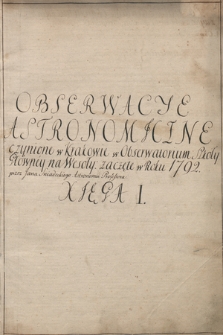 OBSERWACYE
ASTRONOMICZNE
Czynione w Krakowie w Obserwatorium Szkoły
Główney na Wesoły. zaczęte w Roku 1792.
przez Jana Śniadeckiego Astronomii Professora.
XIĘGA I.